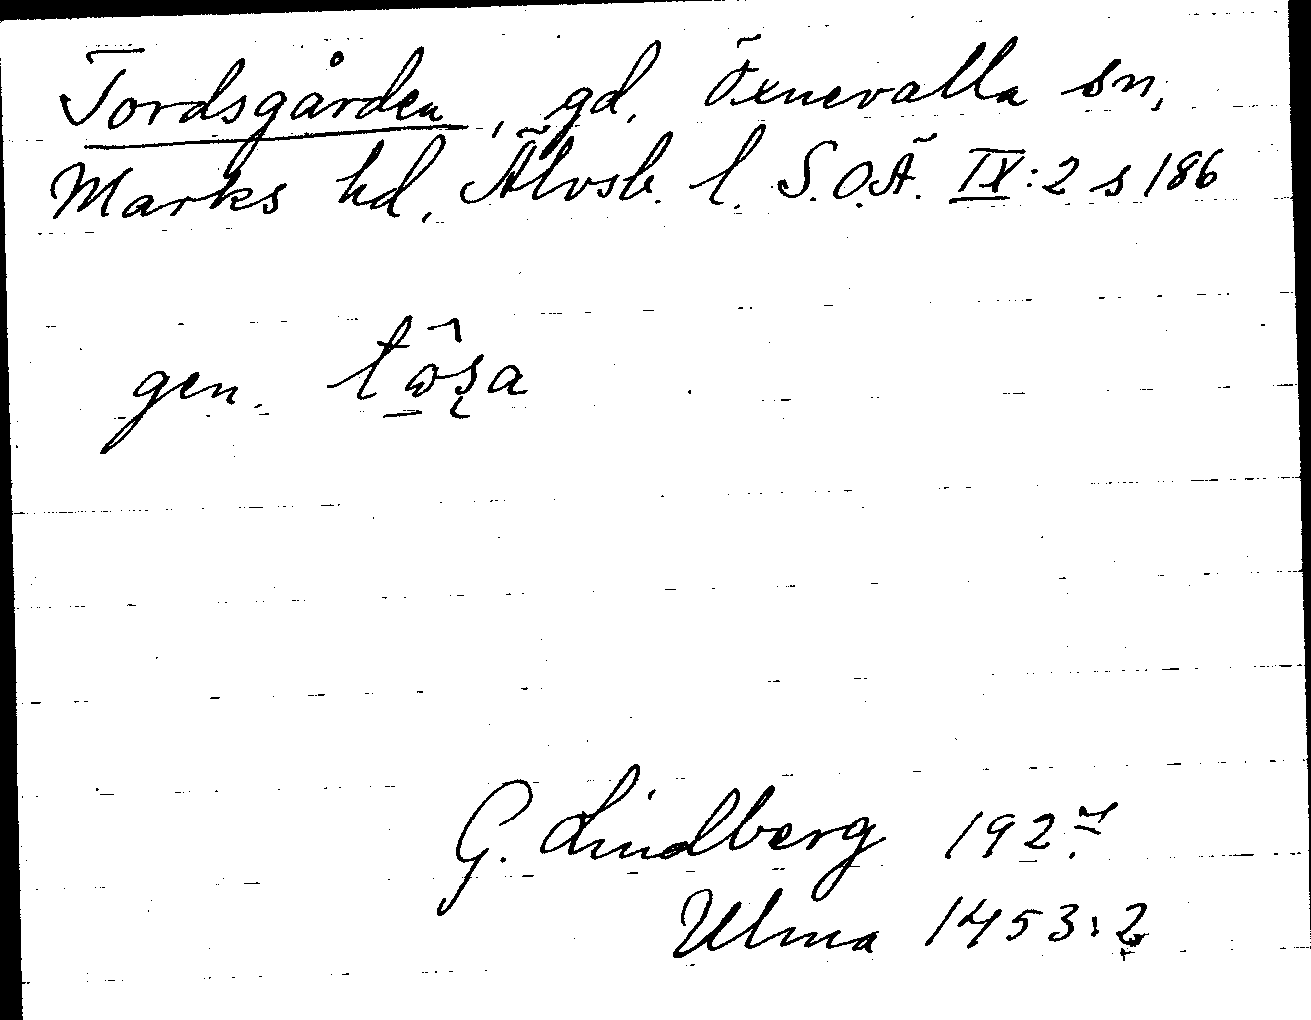 Tordsgården, gd, Öxnevalla sn,
Marks hd, Älvsb. l. S.O.Ä. IX:2 s 186
gen.
G. Lindberg 1927
Ulma 1453:2